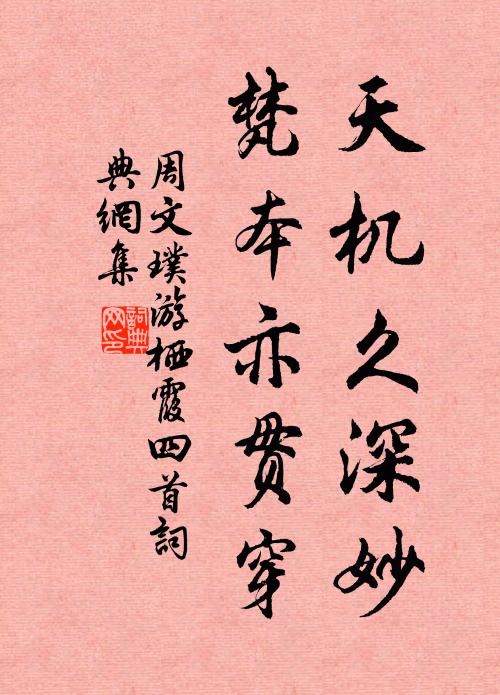 天机久深妙
梵本亦贯穿
周文璞游栖霞四首詞
典網集
詞典
网印